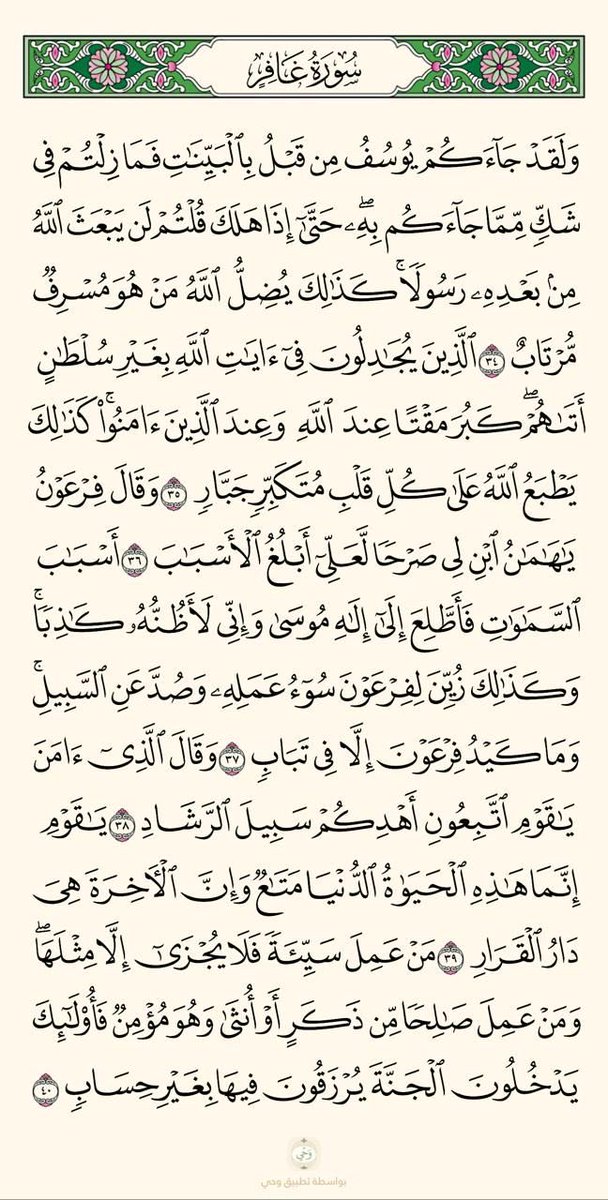 سُورَةُ غَافِرٍ
وَلَقَدْ جَآءَكُمْ يُوسُفُ مِن قَبْلُ بِٱلْبَيِّنَٰتِ فَمَا زِلْتُمْ فِى
شَكٍّ مِّمَّا جَآءَكُم بِهِۦۖ حَتَّىٰٓ إِذَا هَلَكَ قُلْتُمْ لَن يَبْعَثَ ٱللَّهُ
مِنۢ بَعْدِهِۦ رَسُولًاۚ كَذَٰلِكَ يُضِلُّ ٱللَّهُ مَنْ هُوَ مُسْرِفٌ
مُّرْتَابٌ ٣٤ ٱلَّذِينَ يُجَٰدِلُونَ فِىٓ ءَايَٰتِ ٱللَّهِ بِغَيْرِ سُلْطَٰنٍ
أَتَىٰهُمْۖ كَبُرَ مَقْتًا عِندَ ٱللَّهِ وَعِندَ ٱلَّذِينَ ءَامَنُوا۟ۚ كَذَٰلِكَ
يَطْبَعُ ٱللَّهُ عَلَىٰ كُلِّ قَلْبِ مُتَكَبِّرٍ جَبَّارٍ ٣٥ وَقَالَ فِرْعَوْنُ
يَٰهَٰمَٰنُ ٱبْنِ لِى صَرْحًا لَّعَلِّىٓ أَبْلُغُ ٱلْأَسْبَٰبَ ٣٦ أَسْبَٰبَ
ٱلسَّمَٰوَٰتِ فَأَطَّلِعَ إِلَىٰٓ إِلَٰهِ مُوسَىٰ وَإِنِّى لَأَظُنُّهُۥ كَٰذِبًاۚ
وَكَذَٰلِكَ زُيِّنَ لِفِرْعَوْنَ سُوٓءُ عَمَلِهِۦ وَصُدَّ عَنِ ٱلسَّبِيلِۚ
وَمَا كَيْدُ فِرْعَوْنَ إِلَّا فِى تَبَابٍ ٣٧ وَقَالَ ٱلَّذِىٓ ءَامَنَ
يَٰقَوْمِ ٱتَّبِعُونِ أَهْدِكُمْ سَبِيلَ ٱلرَّشَادِ ٣٨ يَٰقَوْمِ
إِنَّمَا هَٰذِهِ ٱلْحَيَوٰةُ ٱلدُّنْيَا مَتَٰعٌ وَإِنَّ ٱلْءَاخِرَةَ هِىَ
دَارُ ٱلْقَرَارِ ٣٩ مَنْ عَمِلَ سَيِّئَةً فَلَا يُجْزَىٰٓ إِلَّا مِثْلَهَاۖ
وَمَنْ عَمِلَ صَٰلِحًا مِّن ذَكَرٍ أَوْ أُنثَىٰ وَهُوَ مُؤْمِنٌ فَأُو۟لَٰٓئِكَ
يَدْخُلُونَ ٱلْجَنَّةَ يُرْزَقُونَ فِيهَا بِغَيْرِ حِسَابٍ ٤٠
وَحْي
بواسطة تطبيق وحي